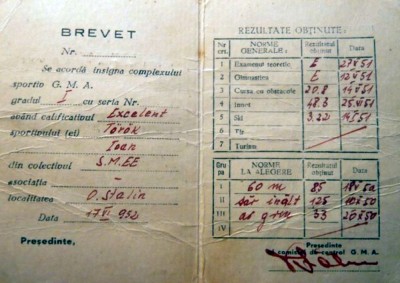 BREVET
Nr.
Se acordă insigna complexului
sportiv G. M. A.
gradul I cu seria Nr.
având calificativul Excelent
sportivului (ei) Török
Ioan
din colectivul S.M.EE
asociația —
localitatea O. Stalin
Data 17 VI 952
Președinte,
REZULTATE OBȚINUTE:
Nr. crt. NORME GENERALE: Rezultatul obținut Data
1 Examenul teoretic E
2 Gimnastica E
3 Cursa cu obstacole 20.8
4 Înnot 48.3
5 Ski 3.22
6 Tir
7 Turism
Gru pa NORME LA ALEGERE Rezultatul obținut Data
I 60 m 85
II săr. înalt 125
III 33
IV
Președinte
al comisiei de control G. M. A.